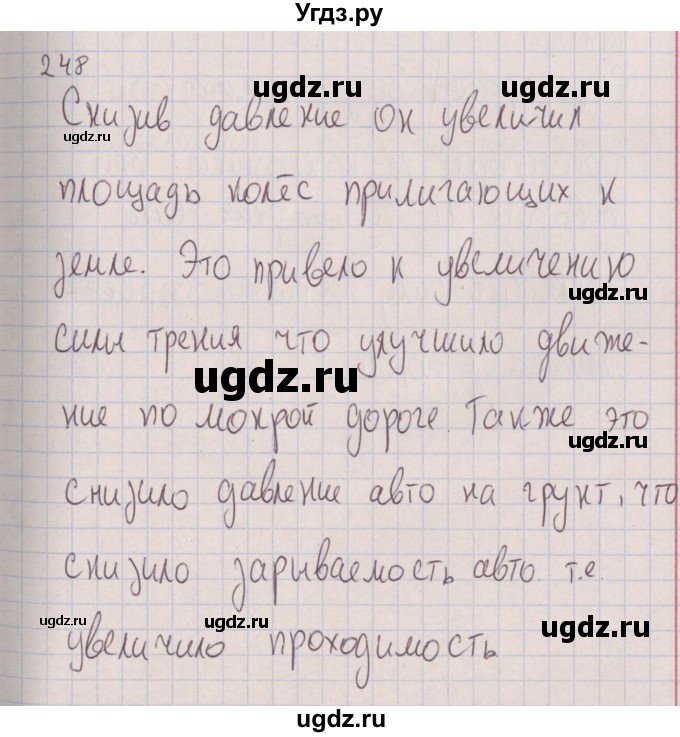 Угдз.ру
248
ugdz.ru
ugdz.ru
Снизив давление он увеличил
ugdz.ru
площадь колёс прилигающих к
земле. Это привело к увеличению
ugdz.ru
силы трения что улучшило движе-
ugdz.ru
ние по мокрой дороге. Также это
ugdz.ru
снизило давление авто на грунт, что
снизило зарываемость авто т.е.
ugdz.ru
ugdz.ru
ugdz.ru
увеличило проходимость
ugdz.ru